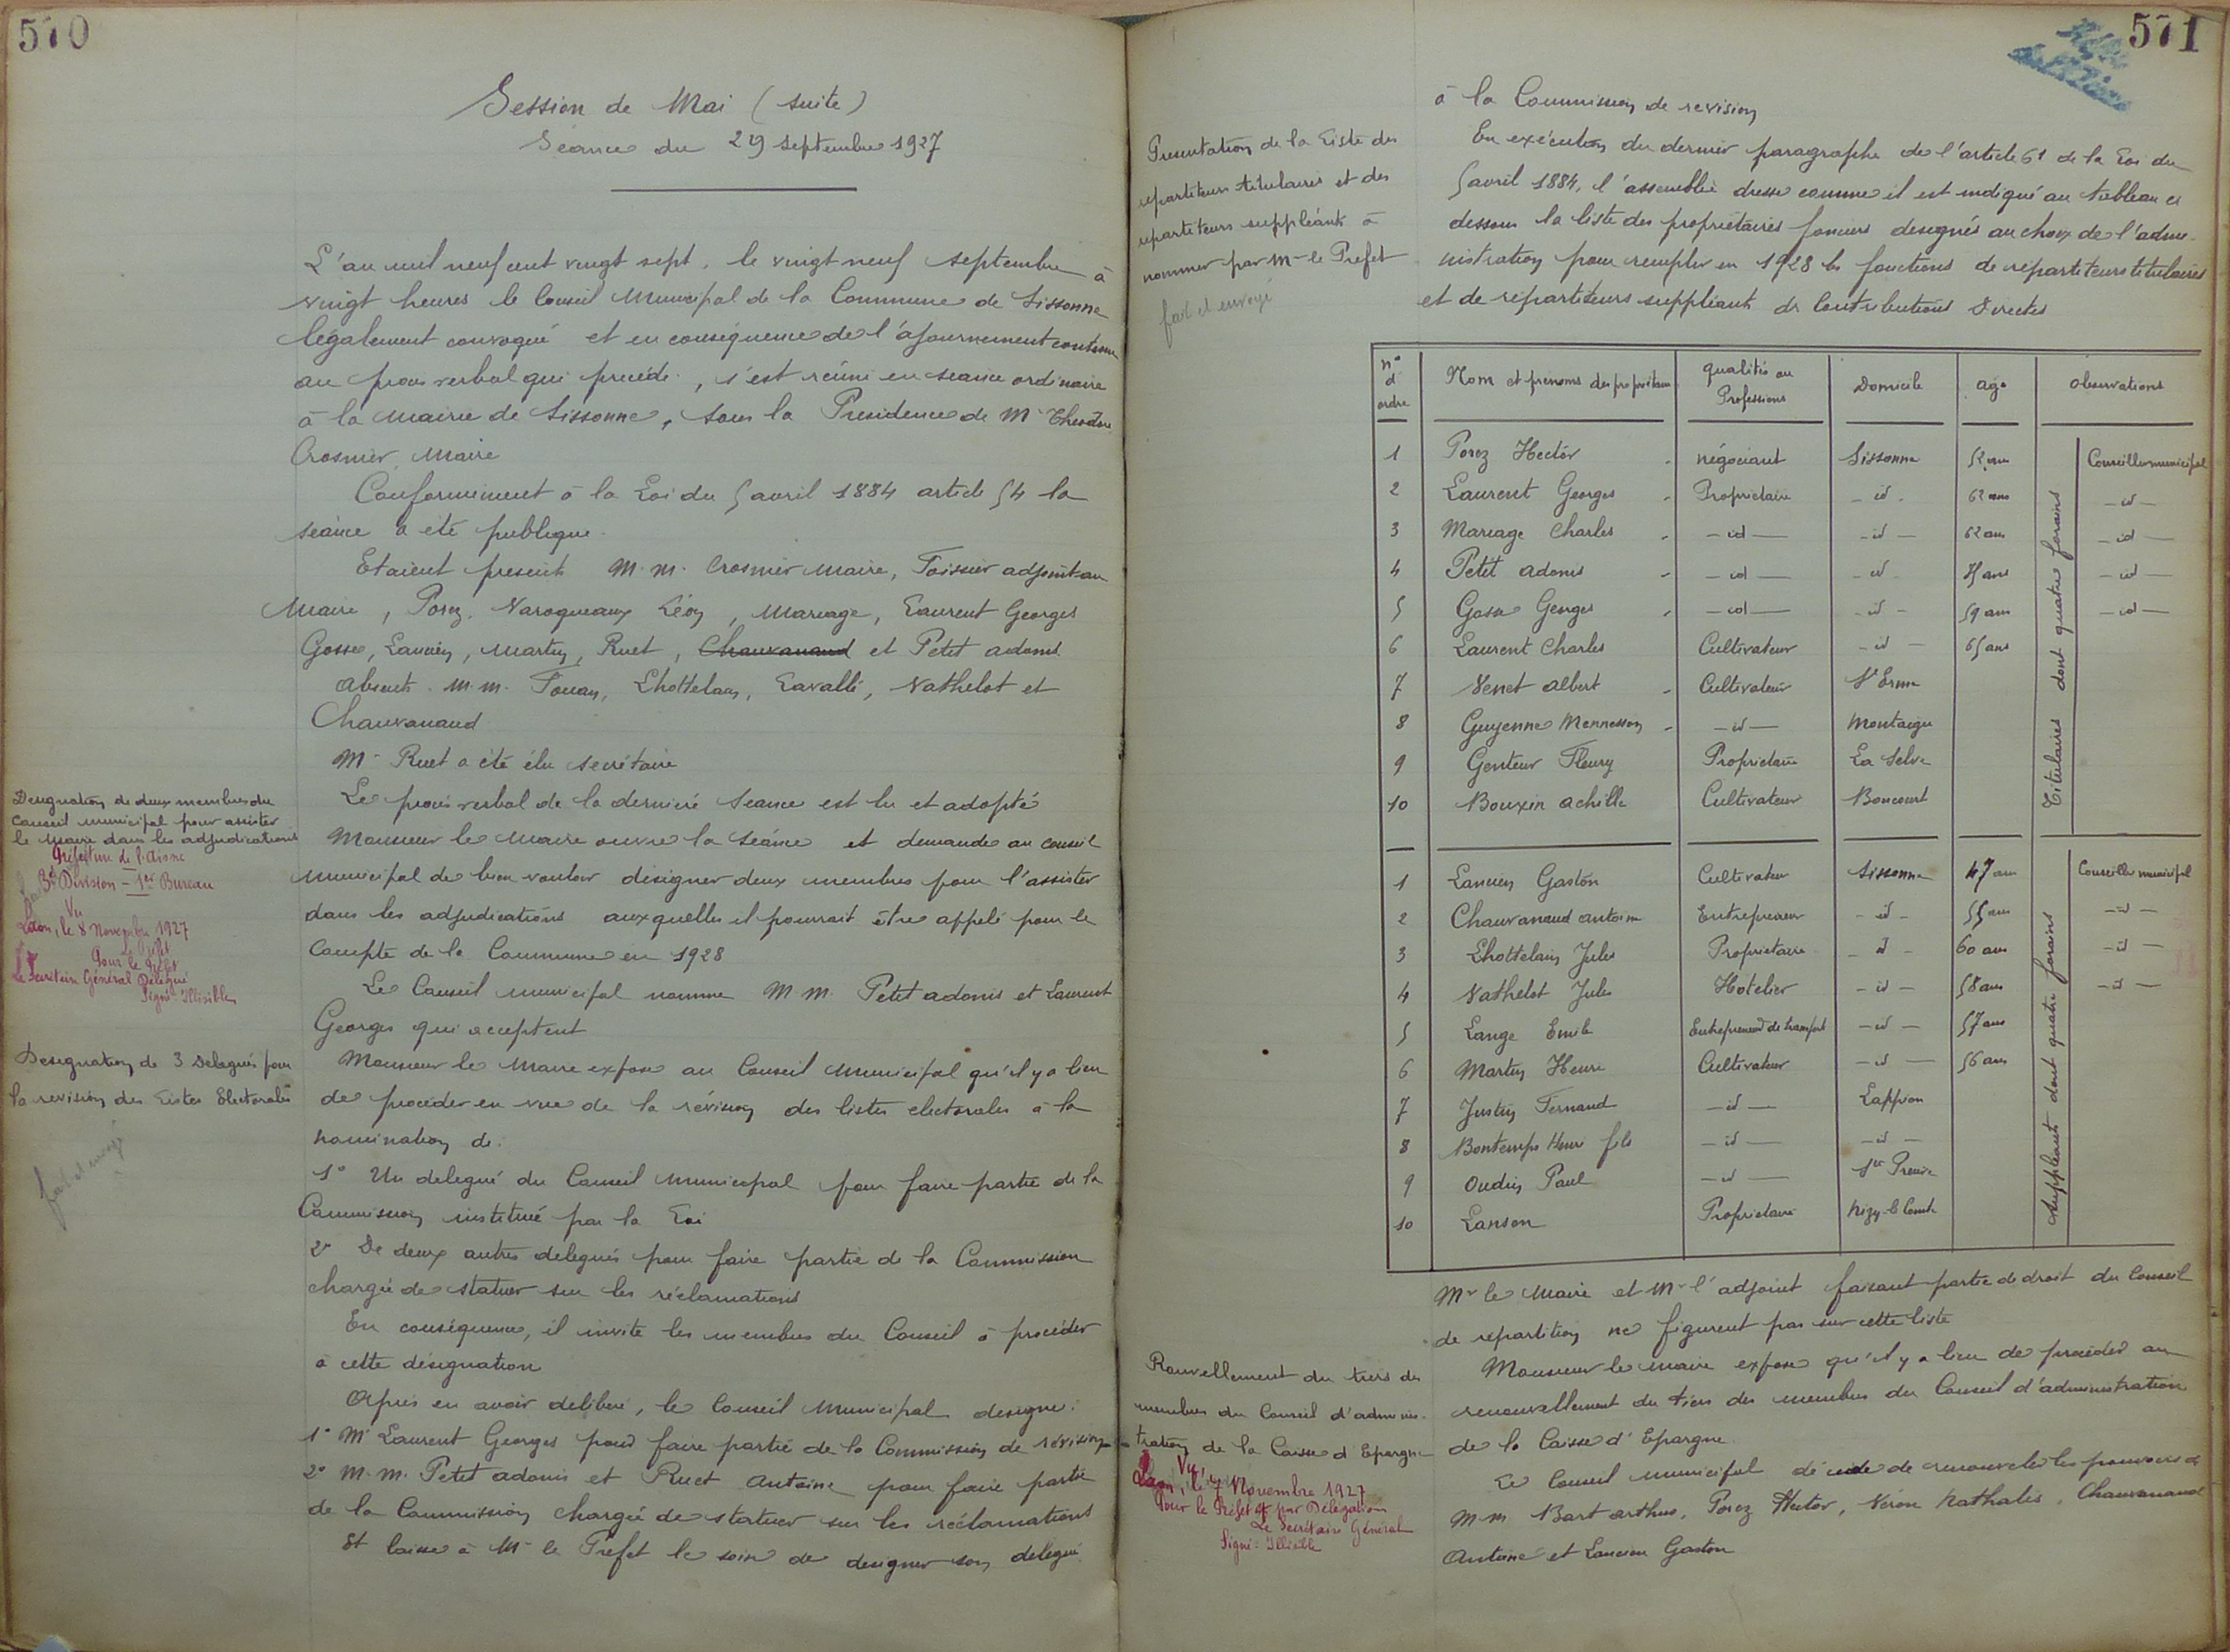 570
Session de Mai (suite)
Séance du 29 septembre 1927
L'an mil neuf cent vingt sept, le vingt neuf septembre à
vingt heures le Conseil Municipal de la Commune de Sissonne
légalement convoqué et en conséquence de l'ajournement contenu
au procès verbal qui précéde, s'est réuni en séance ordinaire
à la Mairie de Sissonne, sous la Présidence de Mr Théodore
Crosnier, Maire
Conformément à la Loi du 5 avril 1884 article 54 la
séance a été publique.
Etaient présents M.M. Crosnier Maire, Toissier adjoint au
Maire, Porez, Naroqueaux Léon, Mariage, Laurent Georges
Gosse, Lancien, Martin, Ruet, Chauvanaud et Petit adonis
Absents M.M. Touan, Lhottelain, Lavallé, Nathelot et
Chauvanaud
Mr Ruet a été élu secrétaire
Le procès verbal de la dernière séance est lu et adopté
Designation de deux membres du
Conseil municipal pour assister
le Maire dans les adjudications
Préfecture de l'Aisne
3e Division - 1er Bureau
Vu
Laon, le 8 Novembre 1927
Le Préfet
Pour le Préfet
Le Secrétaire Général Délégué
Signé: Illisible
Monsieur le Maire ouvre la séance et demande au conseil
municipal de bien vouloir désigner deux membres pour l'assister
dans les adjudications auxquelles il pourrait être appelé pour le
compte de la Commune en 1928
Le Conseil municipal nomme M.M. Petit adonis et Laurent
Georges qui acceptent
Designation de 3 Délégués pour
la revision des Listes Electorales
fait et envoyé
Monsieur le Maire expose au Conseil Municipal qu'il y a lieu
de procéder en vue de la révision des listes electorales à la
nomination de:
1° Un delegué du Conseil Municipal pour faire partie de la
Commission instituée par la Loi
2° De deux autres delegués pour faire partie de la Commission
chargée de statuer sur les réclamations
En conséquence, il invite les membres du Conseil à procéder
à cette désignation
Après en avoir délibéré, le Conseil Municipal designe:
1° Mr Laurent Georges pour faire partie de la Commission de révision
2° M.M. Petit adonis et Ruet Antoine pour faire partie
de la Commission chargée de statuer sur les réclamations
Et laisse à Mr le Préfet le soin de designer son délégué
571
à la Commission de revision
Presentation de la Liste des
répartiteurs titulaires et des
répartiteurs suppléants à
nommer par Mr le Préfet
fait et envoyé
En exécution du dernier paragraphe de l'article 61 de la Loi du
5 avril 1884, l'assemblée dresse comme il est indiqué au tableau ci
dessous la liste des propriétaires fonciers designés au choix de l'admi-
nistration pour remplir en 1928 les fonctions de répartiteurs titulaires
et de répartiteurs suppléants de Contributions Directes
n° d'ordre Nom et prenoms des propriétaires qualités ou Professions Domicile age Observations
1 Porez Hector négociant Sissonne 52 ans Conseiller municipal
2 Laurent Georges Propriétaire - id - 62 ans - id -
3 Mariage Charles - id - - id - 62 ans - id -
4 Petit adonis - id - - id - 75 ans - id -
5 Gosse Georges - id - - id - 59 ans - id -
6 Laurent Charles Cultivateur - id - 65 ans
7 Venet Albert Cultivateur St Erme
8 Guyenne Mennesson - id - Montaigu
9 Genteur Fleury Propriétaire La Selve
10 Bouxin Achille Cultivateur Boncourt
Titulaires dont quatre forains
1 Lancien Gaston Cultivateur Sissonne 47 ans Conseiller municipal
2 Chauvanaud antoine Entrepreneur - id - 55 ans - id -
3 Lhottelain Jules Propriétaire - id - 60 ans - id -
4 Nathelot Jules Hotelier - id - 58 ans - id -
5 Lange Emile Entrepreneur de transport - id - 57 ans
6 Martin Henri Cultivateur - id - 56 ans
7 Justin Fernand - id - Lappion
8 Bontemps Henri fils - id - - id -
9 Oudin Paul - id - Ste Preuve
10 Lanson Propriétaire Nizy-le-Comte
Suppléants dont quatre forains
Mr le Maire et Mr l'adjoint faisant partie de droit du Conseil
de répartition ne figurent pas sur cette liste
Rouvellement du tiers des
membres du Conseil d'adminis-
tration de la Caisse d'Epargne
Vu
Laon, le 7 Novembre 1927
Pour le Préfet et par Délégation
Le Secrétaire Général
Signé: Illisible
Monsieur le Maire expose qu'il y a lieu de procéder au
renouvellement du tiers des membres du Conseil d'administration
de la Caisse d'Epargne.
Le Conseil municipal décide de renouveler les pouvoirs de
M.M. Bart arthus, Porez Hector, Néron Nathalis, Chauvanaud
Antoine et Lancien Gaston